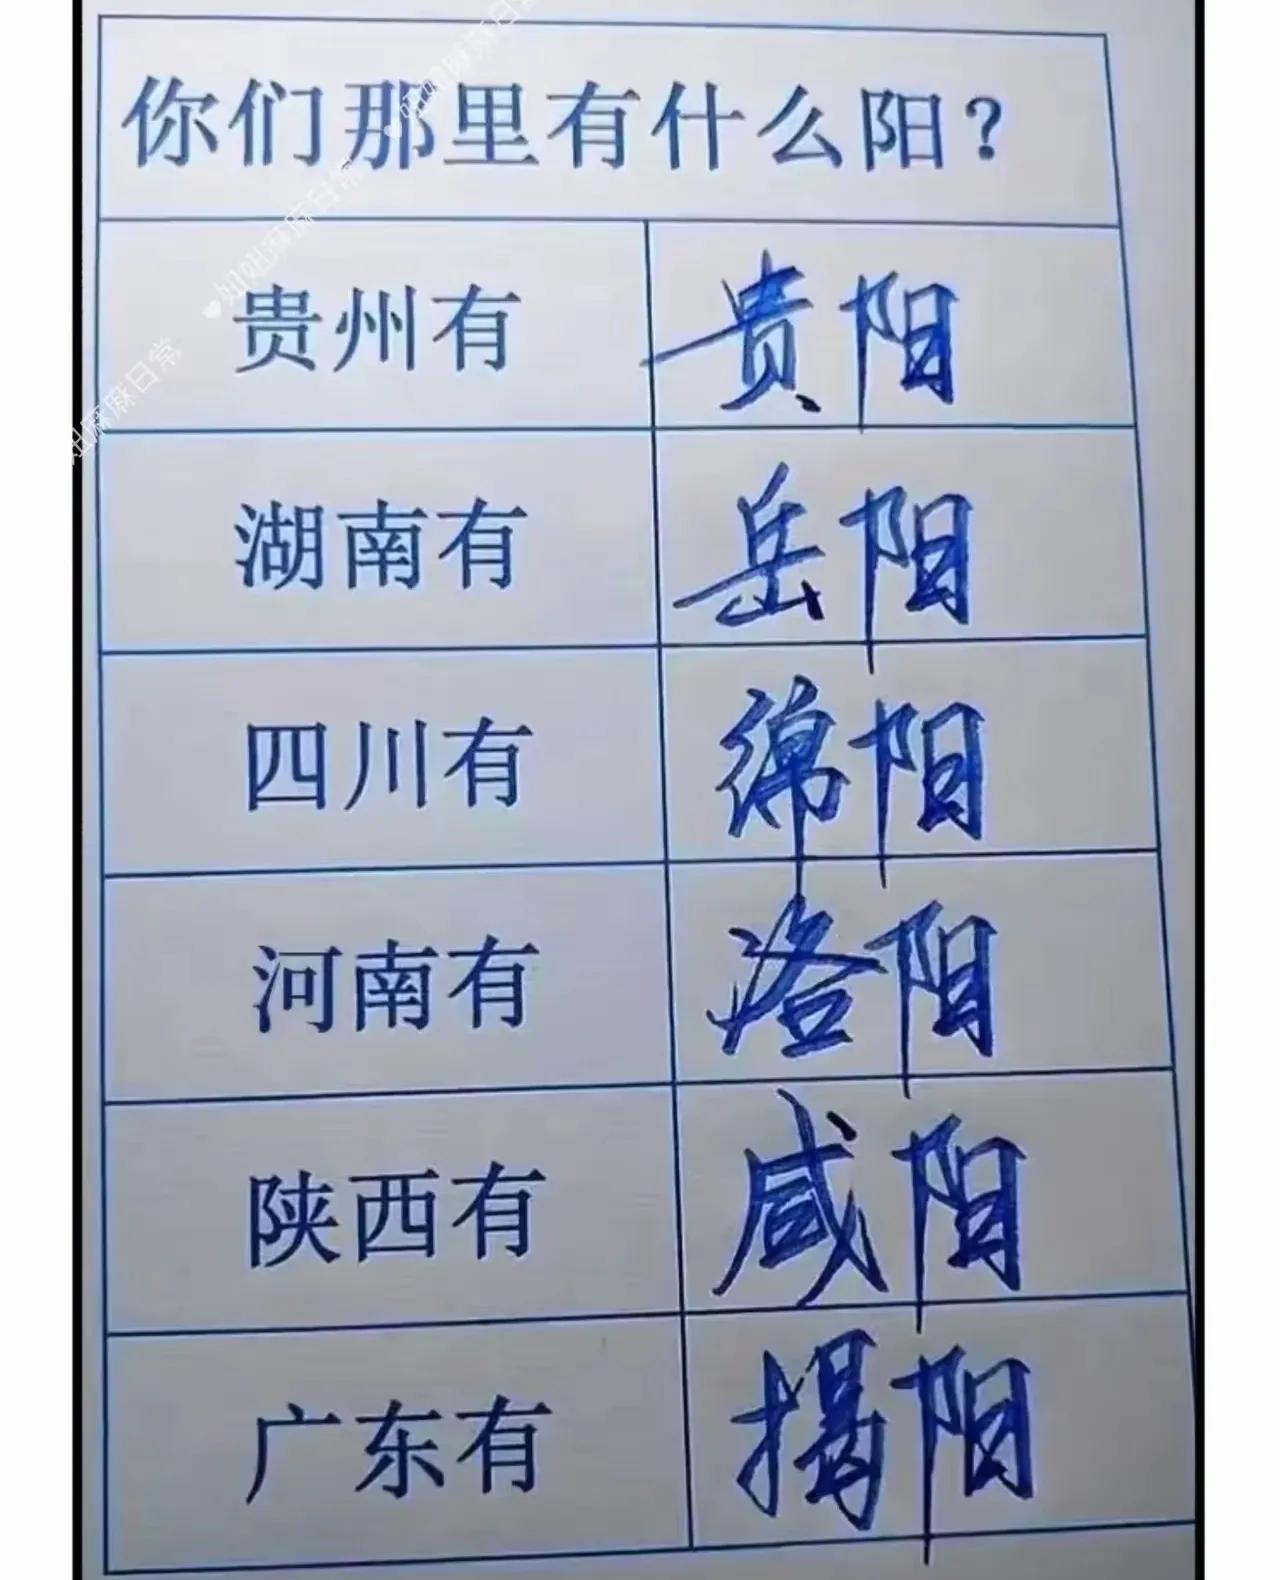 你们那里有什么阳？
贵州有 贵阳
湖南有 岳阳
四川有 绵阳
河南有 洛阳
陕西有 咸阳
广东有 揭阳